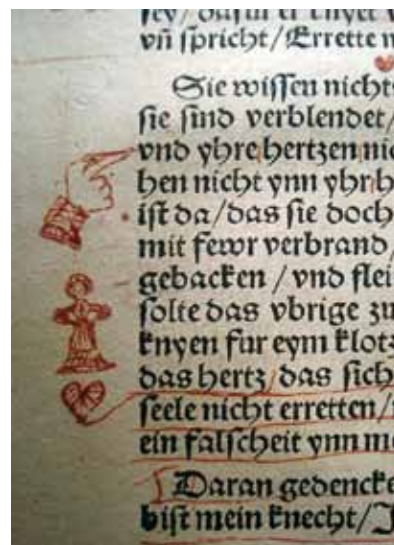 vñ spricht/Errette
Sie wissen nichts
sie sind verblendet/
vnd yhre hertzen
hen nicht ynn yhr
ist da/das sie doch
mit fewr verbrand/
gebacken/vnd flei
solte das vbrige zu
knyen fur eym klotz
das hertz/das sich
seele nicht erretten/
ein falscheit ynn
Daran gedencke
bist mein knecht/